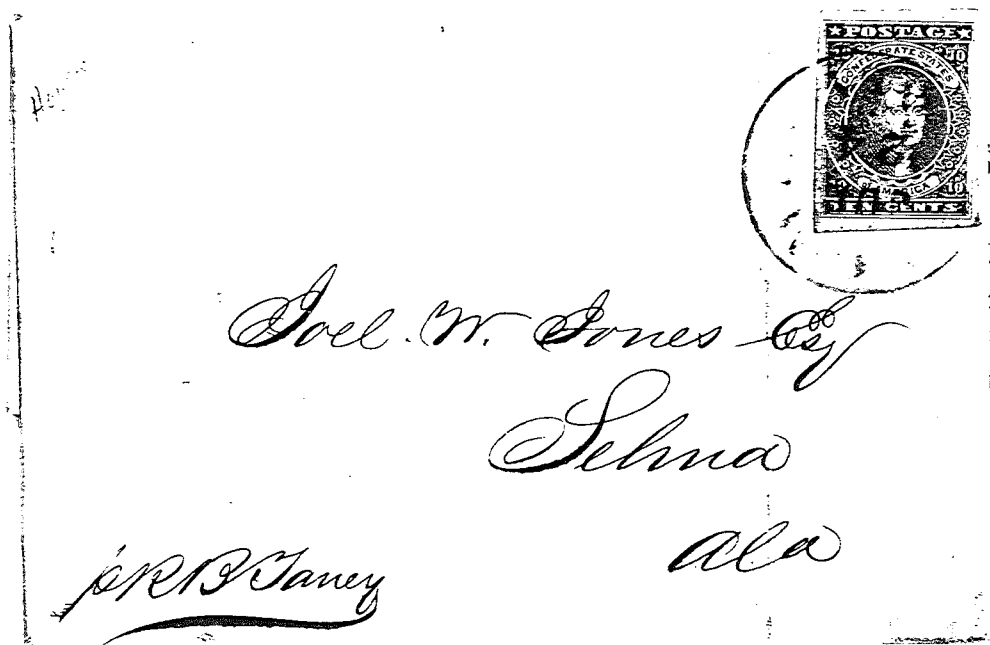 ★POSTAGE★
10 10
CONFEDERATE STATES
OF AMERICA
10 10
TEN CENTS
Joel. W. Jones Esq
Selma
Ala
pr R B Taney